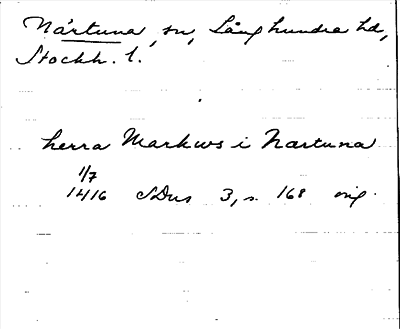 Närtuna, sn, Långhundra hd,
Stockh. l.
herra Markws i Nartuna
1/7
1416 SDns 3, s. 168 orig.